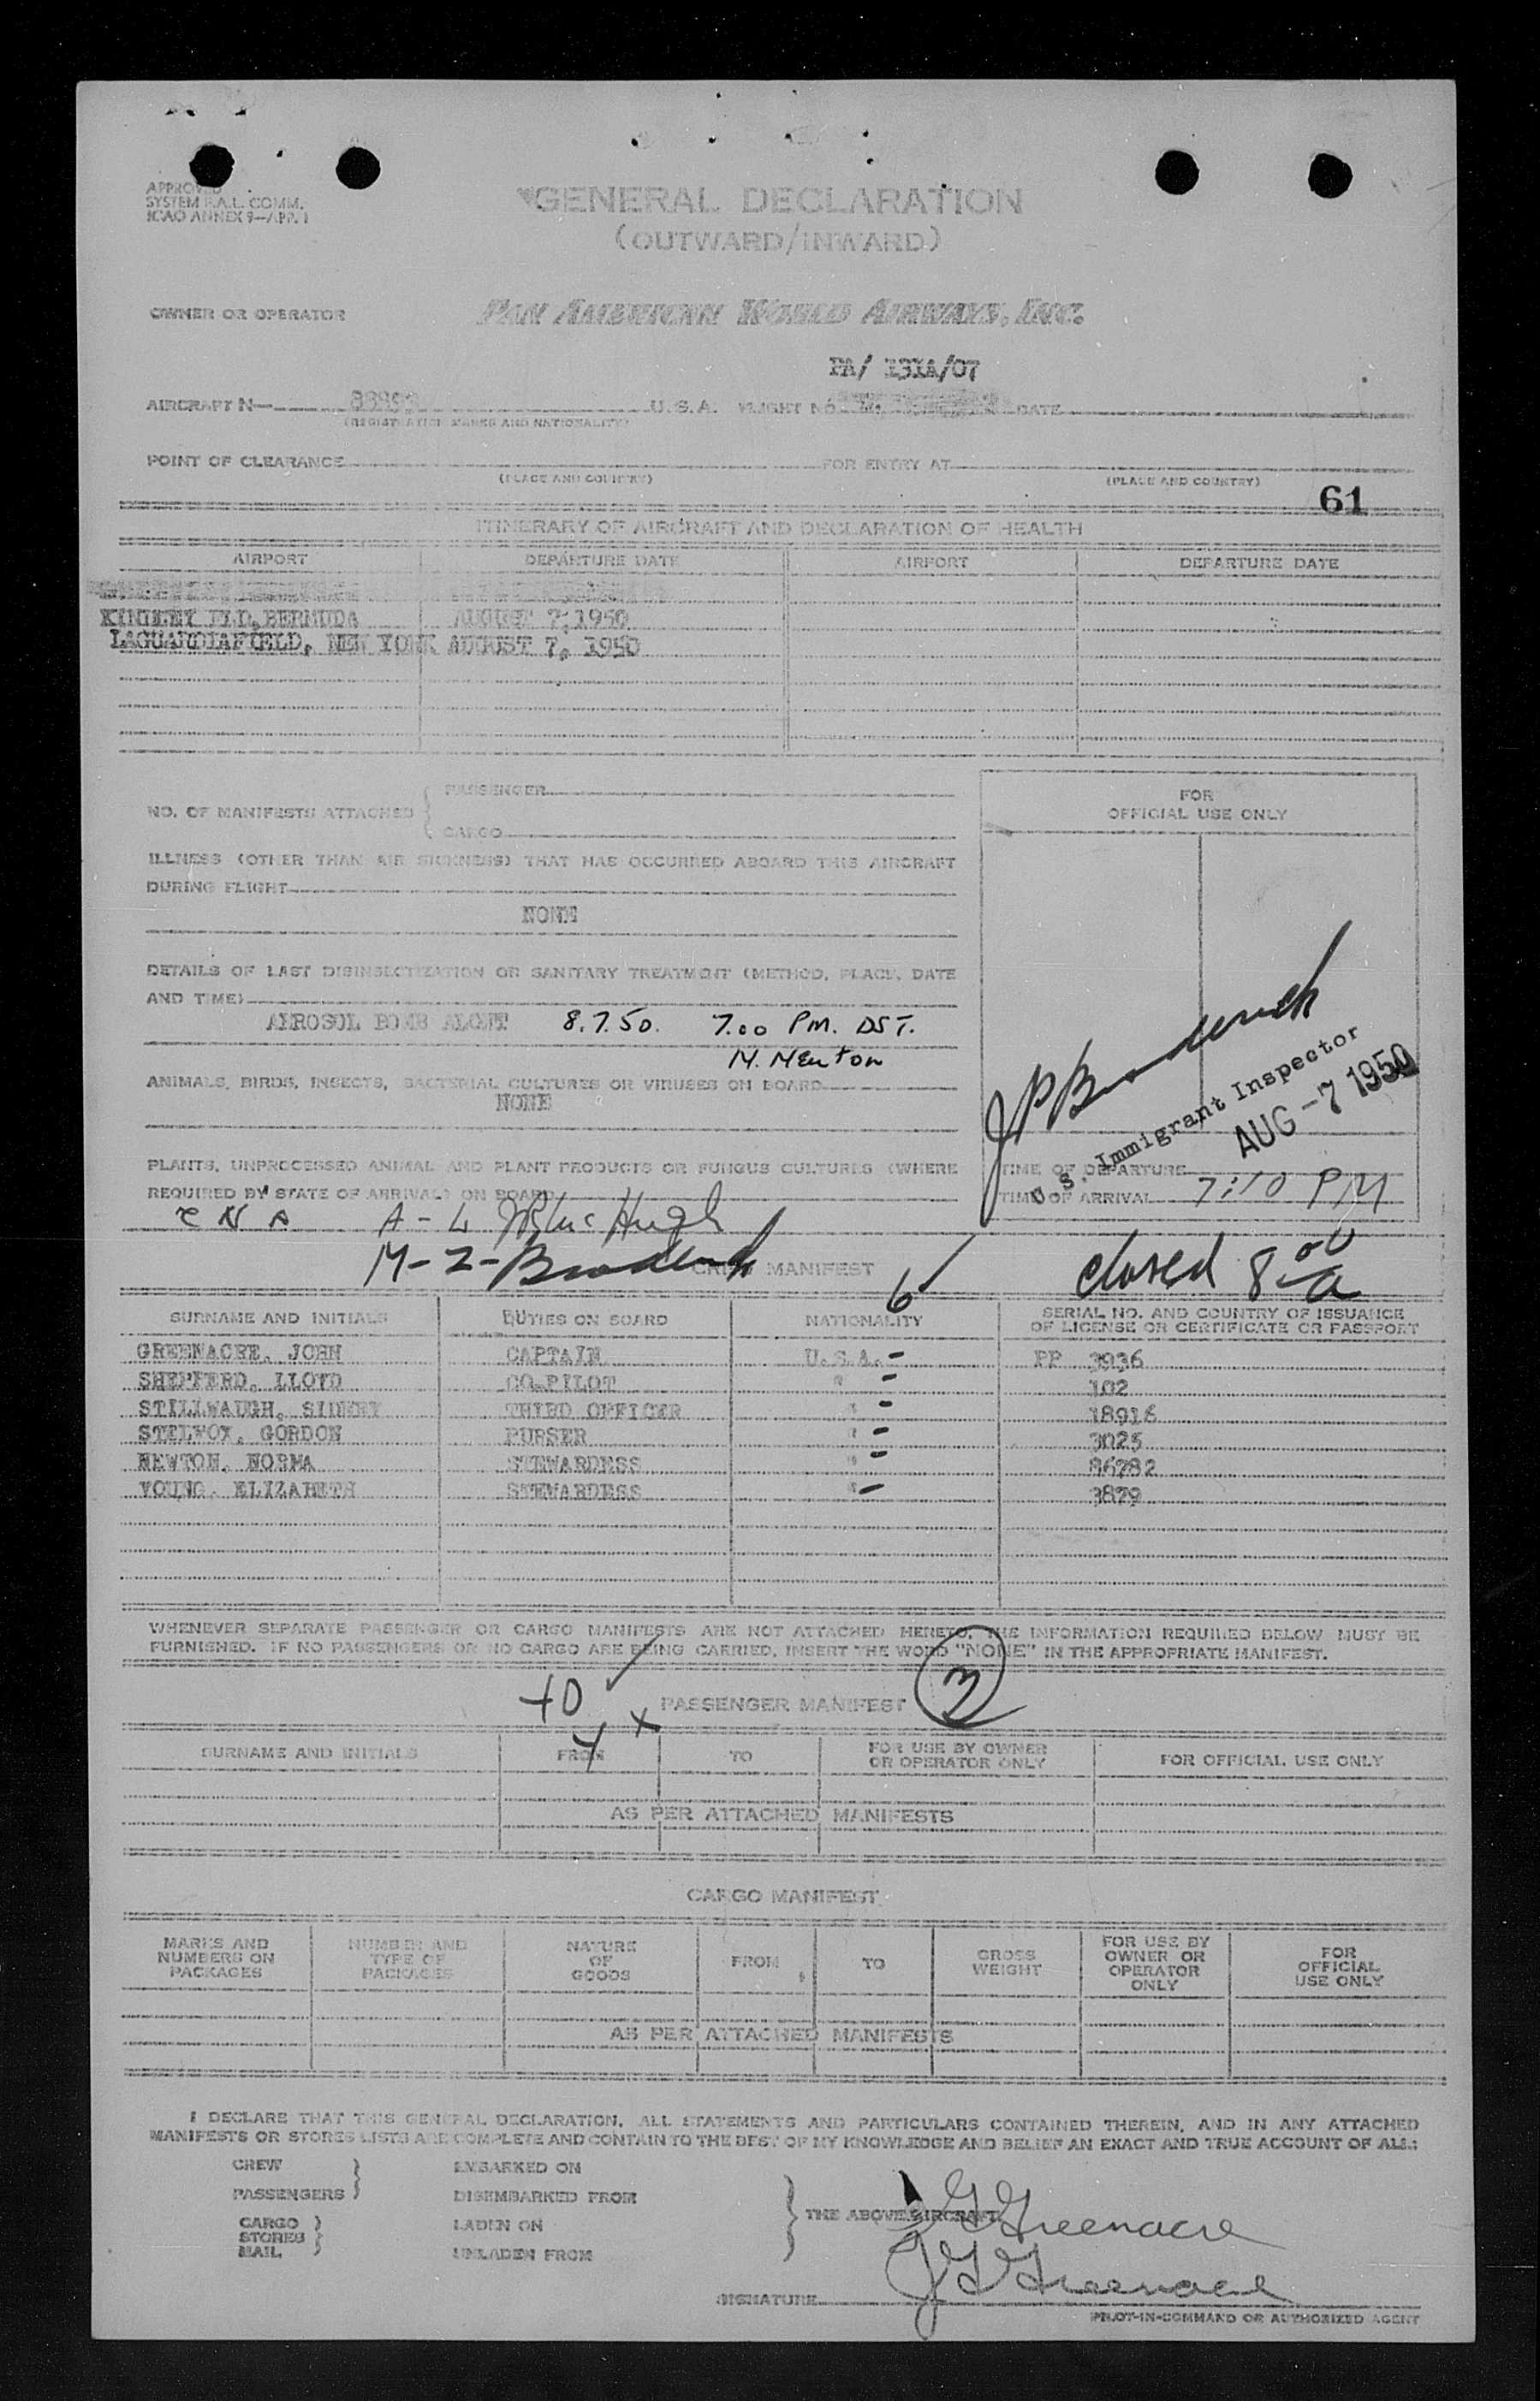 APPROVED
SYSTEM F.A.L. COMM.
ICAO ANNEX 9—APP. 1
GENERAL DECLARATION
(OUTWARD/INWARD)
OWNER OR OPERATOR PAN AMERICAN WORLD AIRWAYS, INC.
PA/ 131A/07
AIRCRAFT N— U. S. A. FLIGHT NO. DATE
(REGISTRATION MARKS AND NATIONALITY)
POINT OF CLEARANCE FOR ENTRY AT
(PLACE AND COUNTRY) (PLACE AND COUNTRY)
61
ITINERARY OF AIRCRAFT AND DECLARATION OF HEALTH
AIRPORT DEPARTURE DATE AIRPORT DEPARTURE DATE
KINDLEY FLD, BERMUDA AUGUST 7, 1950
LAGUARDIAFIELD, NEW YORK AUGUST 7, 1950
NO. OF MANIFESTS ATTACHED { PASSENGER
CARGO
FOR
OFFICIAL USE ONLY
ILLNESS (OTHER THAN AIR SICKNESS) THAT HAS OCCURRED ABOARD THIS AIRCRAFT
DURING FLIGHT
NONE
DETAILS OF LAST DISINSECTIZATION OR SANITARY TREATMENT (METHOD, PLACE, DATE
AND TIME)
AEROSOL BOMB ALOFT 8.7.50. 7.00 PM. DST.
N. Newton
ANIMALS, BIRDS, INSECTS, BACTERIAL CULTURES OR VIRUSES ON BOARD
NONE
U. S. Immigrant Inspector
AUG -7 1950
PLANTS, UNPROCESSED ANIMAL AND PLANT PRODUCTS OR FUNGUS CULTURES (WHERE
REQUIRED BY STATE OF ARRIVAL) ON BOARD
TIME OF DEPARTURE
TIME OF ARRIVAL 7:10 PM
closed 8
CREW MANIFEST
6
SURNAME AND INITIALS DUTIES ON BOARD NATIONALITY SERIAL NO. AND COUNTRY OF ISSUANCE
OF LICENSE OR CERTIFICATE OR PASSPORT
GREENACRE, JOHN CAPTAIN U.S.A. - PP 3936
SHEPFERD, LLOYD CO-PILOT " - 102
STILLWAUGH, SIDNEY THIRD OFFICER " - 18916
STELWOX, GORDON PURSER " - 3025
NEWTON, NORMA STEWARDESS " - 86782
YOUNG, ELIZABETH STEWARDESS " - 3879
WHENEVER SEPARATE PASSENGER OR CARGO MANIFESTS ARE NOT ATTACHED HERETO, THE INFORMATION REQUIRED BELOW MUST BE
FURNISHED. IF NO PASSENGERS OR NO CARGO ARE BEING CARRIED, INSERT THE WORD "NONE" IN THE APPROPRIATE MANIFEST.
PASSENGER MANIFEST
SURNAME AND INITIALS FROM TO FOR USE BY OWNER
OR OPERATOR ONLY FOR OFFICIAL USE ONLY
AS PER ATTACHED MANIFESTS
CARGO MANIFEST
MARKS AND
NUMBERS ON
PACKAGES NUMBER AND
TYPE OF
PACKAGES NATURE
OF
GOODS FROM TO GROSS
WEIGHT FOR USE BY
OWNER OR
OPERATOR
ONLY FOR
OFFICIAL
USE ONLY
AS PER ATTACHED MANIFESTS
I DECLARE THAT THIS GENERAL DECLARATION, ALL STATEMENTS AND PARTICULARS CONTAINED THEREIN, AND IN ANY ATTACHED
MANIFESTS OR STORES LISTS ARE COMPLETE AND CONTAIN TO THE BEST OF MY KNOWLEDGE AND BELIEF AN EXACT AND TRUE ACCOUNT OF ALL:
CREW EMBARKED ON
PASSENGERS DISEMBARKED FROM
CARGO LADEN ON THE ABOVE AIRCRAFT
STORES
MAIL UNLADEN FROM
J G Greenacre
SIGNATURE J G Greenacre
PILOT-IN-COMMAND OR AUTHORIZED AGENT